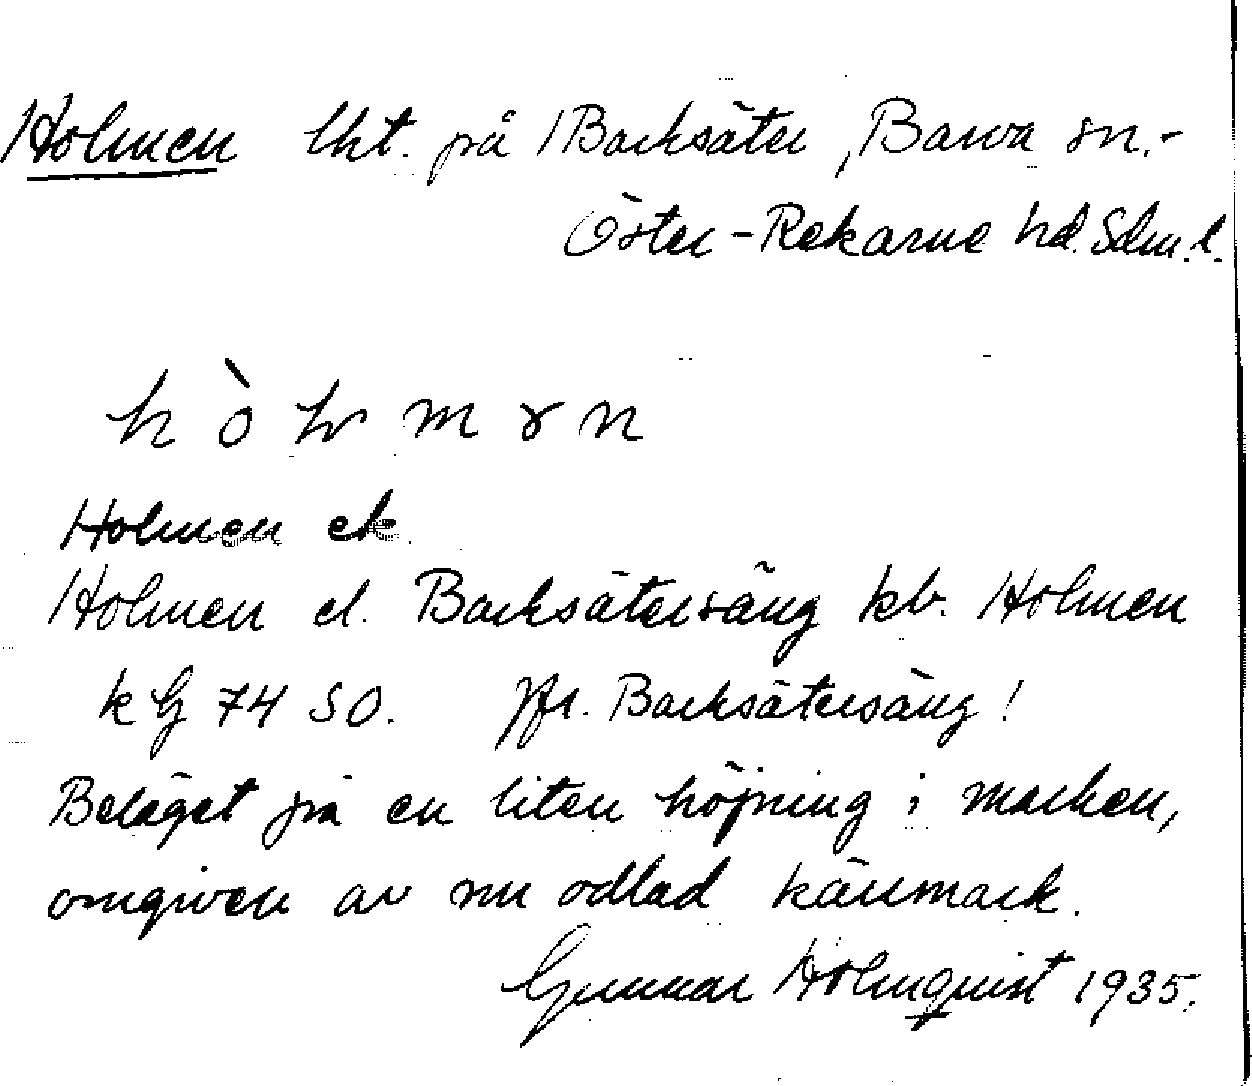 Holmen lht. på Barksäter, Barva sn.-
Öster-Rekarne hd. Sdm. l.
h ò lv m ɤ n
Holmen ek
Holmen el. Barksätersäng kb. Holmen
k G 74 SO. Jfr. Barksätersäng!
Beläget på en liten höjning i marken,
omgiven av nu odlad kärrmark.
Gunnar Holmquist 1935.